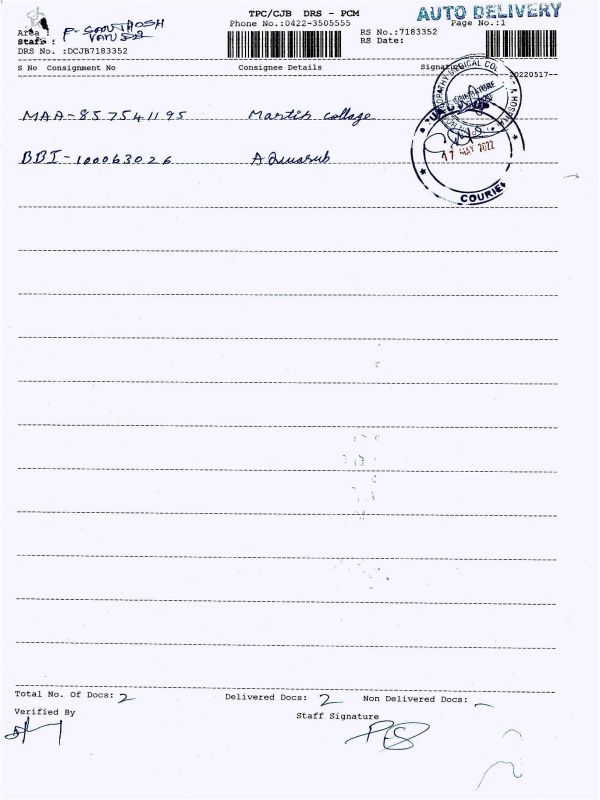 TPC/CJB DRS - PCM
AUTO DELIVERY
Area :
P. SANTHOSH
Phone No.:0422-3505555
Page No.:1
Staff :
RS No.:7183352
DRS No. :DCJB7183352
RS Date:
S No Consignment No Consignee Details Signature
20220517--
MAA-857541195 Martin collage
17 MAY 2022
BBI-100063026
COURIER
Total No. Of Docs: 2 Delivered Docs: 2 Non Delivered Docs: -
Verified By Staff Signature